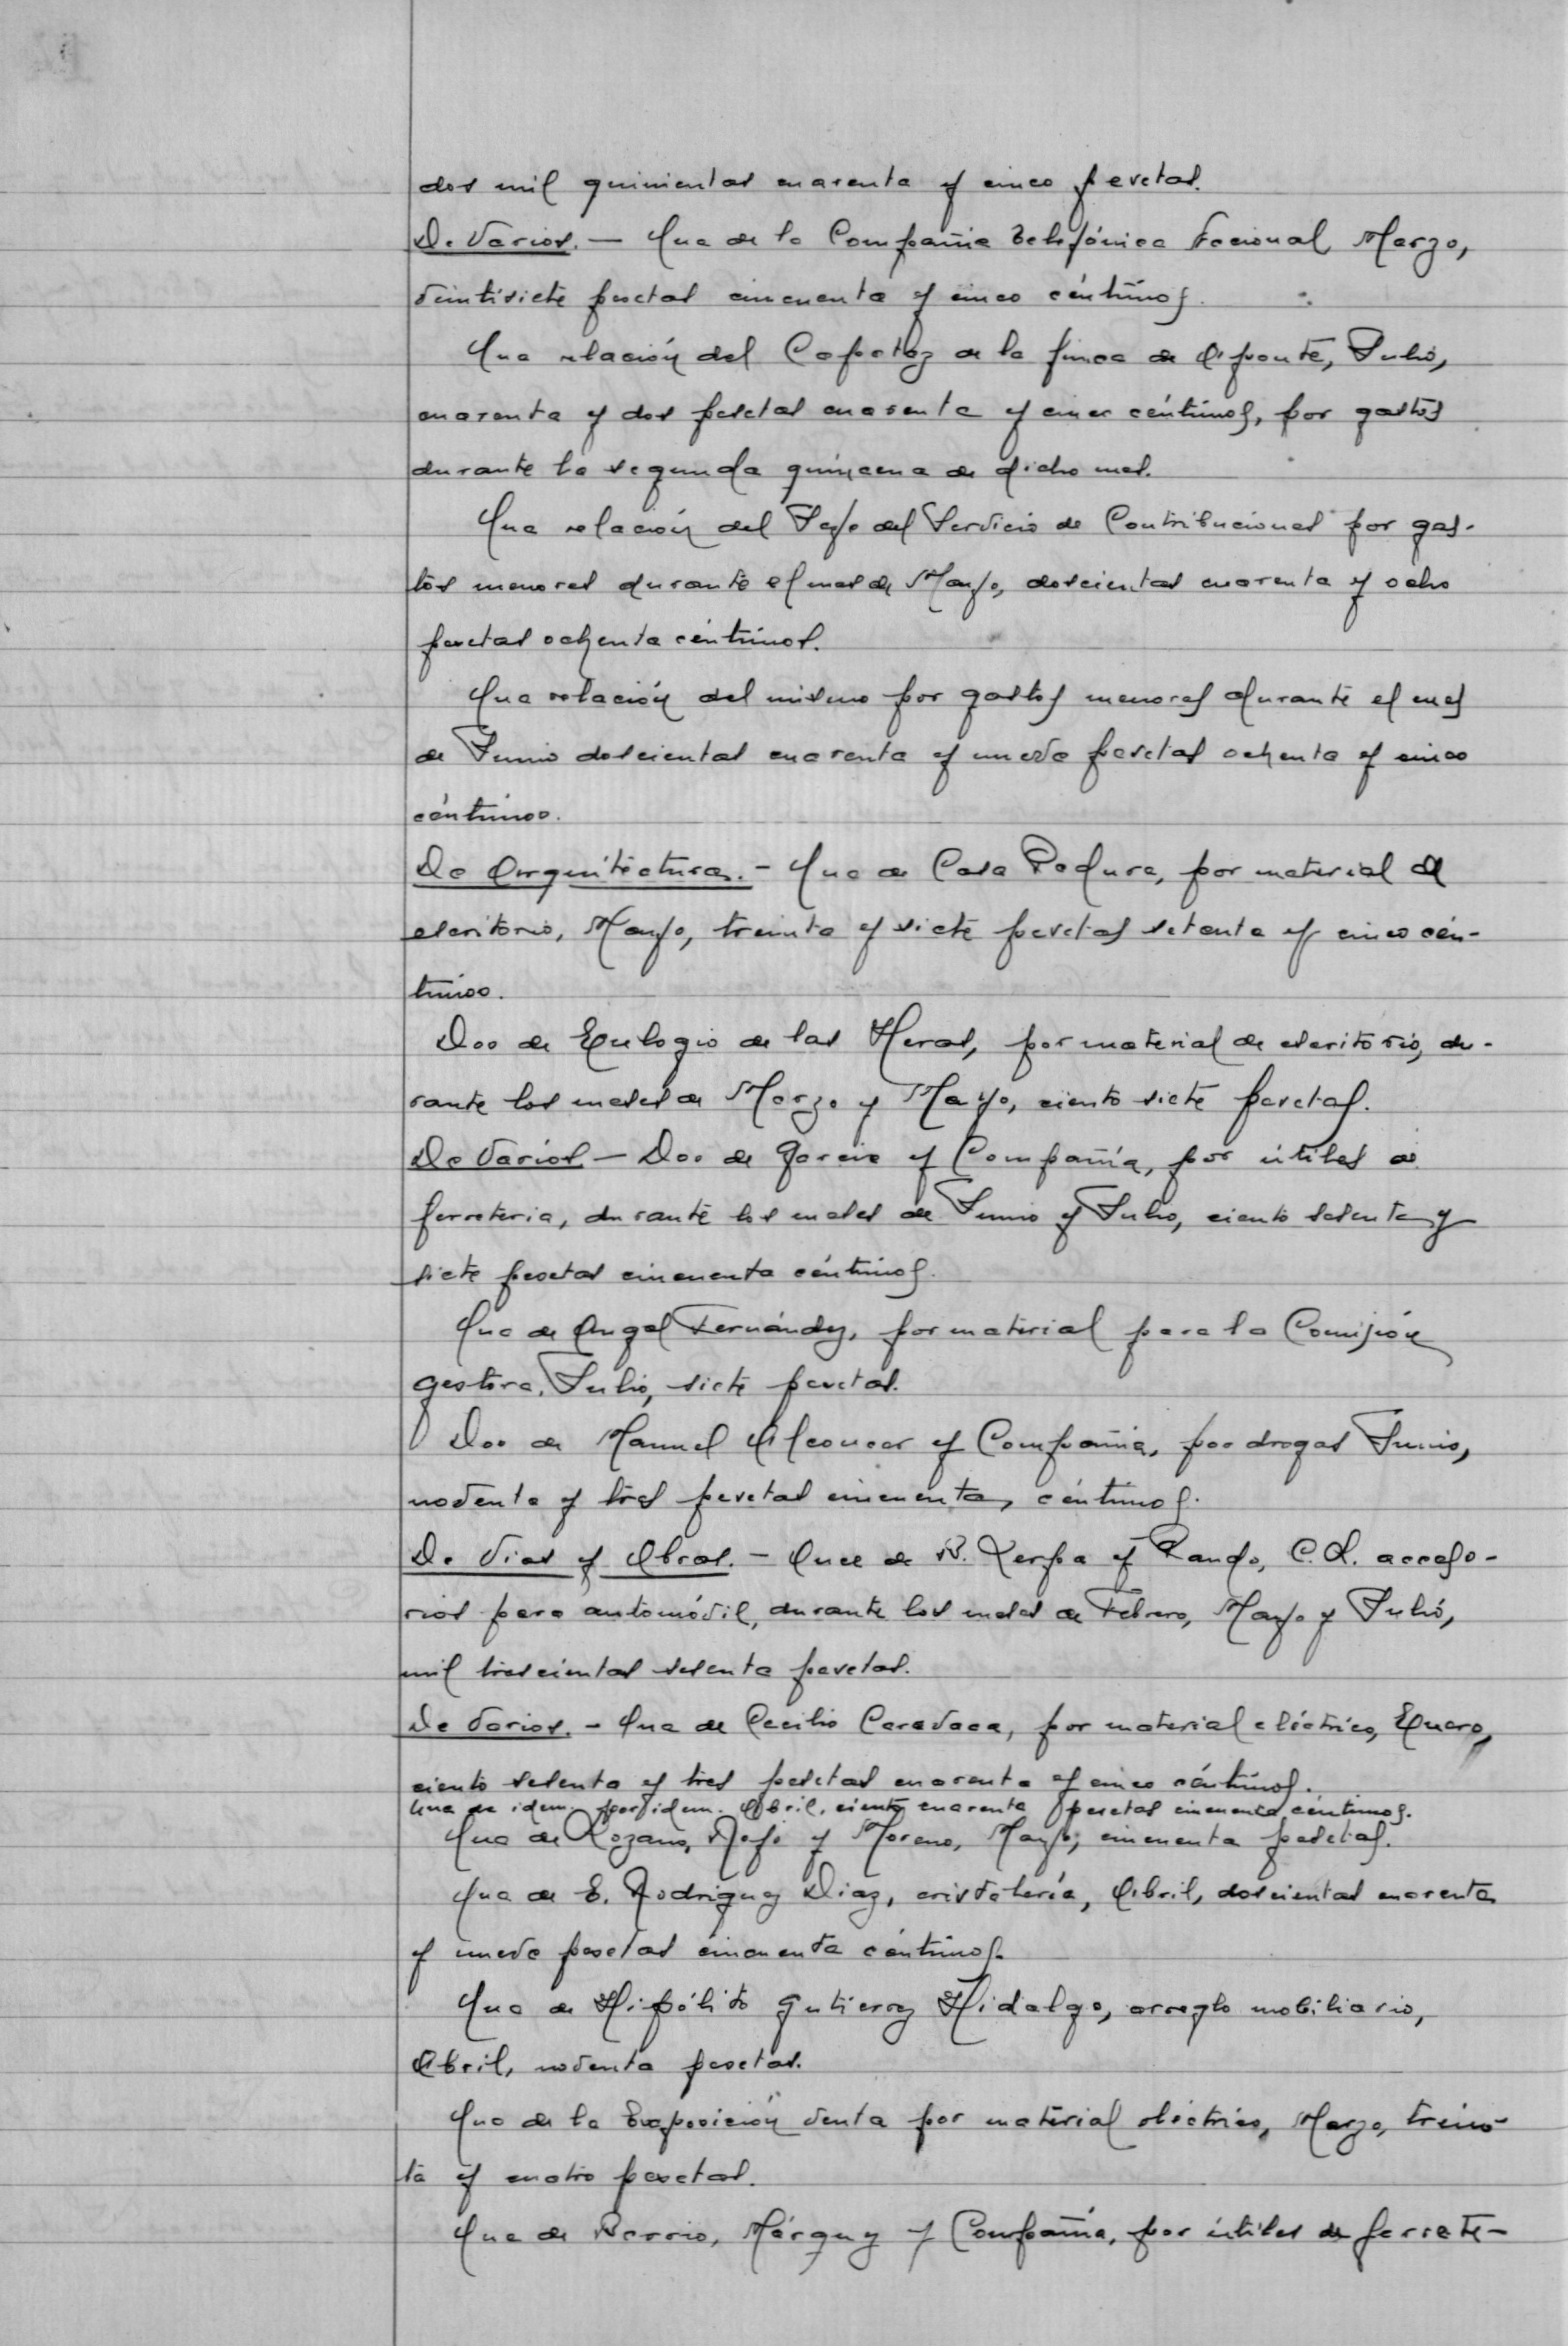 dos mil quinientas cuarenta y cinco pesetas.
De Varios. — Una de la Compañia Telefónica Nacional, Marzo,
veintisiete pesetas cincuenta y cinco céntimos.
Una relación del Capataz de la finca de Aponte, Julio,
cuarenta y dos pesetas cuarenta y cinco céntimos, por gastos
durante la segunda quincena de dicho mes.
Una relación del Jefe del Servicio de Contribuciones por gas-
tos menores durante el mes de Mayo, doscientas cuarenta y ocho
pesetas ochenta céntimos.
Una relación del mismo por gastos menores durante el mes
de Junio doscientas cuarenta y nueve pesetas ochenta y cinco
céntimos.
De Arquitectura. - Una de Casa Padura, por material de
escritorio, Mayo, treinta y siete pesetas setenta y cinco cén-
timos.
Dos de Eulogio de las Heras, por material de escritorio, du-
rante los meses de Marzo y Mayo, ciento siete pesetas.
De Varios — Dos de Garcia y Compañía, por útiles de
ferreteria, durante los meses de Junio y Julio, ciento sesenta y
siete pesetas cincuenta céntimos.
Una de Angel Fernández, por material para la Comisión
gestora, Julio, siete pesetas.
Dos de Manuel Alconcer y Compañia, por drogas Junio,
noventa y tres pesetas cincuenta, céntimos.
De Vias y Obras. - Once de B. Xerpa y Rando, C.L. acceso-
rios para automóvil, durante los meses de Febrero, Mayo y Julio,
mil trescientas sesenta pesetas.
De Varios. - Una de Cecilio Caravaca, por material eléctrico, Enero,
ciento sesenta y tres pesetas cuarenta y cinco céntimos.
Una de idem. por idem. Abril, ciento cuarenta pesetas cincuenta céntimos.
Una de Lozano, Rojo y Moreno, Mayo, cincuenta pesetas.
Una de E. Rodriguez Diaz, cristalería, Abril, doscientas cuarenta
y nueve pesetas cincuenta céntimos.
Una de Hipólito Gutierrez Hidalgo, arreglo mobiliario,
Abril, noventa pesetas.
Una de la Exposición venta por material eléctrico, Marzo, trein-
ta y cuatro pesetas.
Una de Barrio, Márquez y Compañia, por útiles de ferrete-